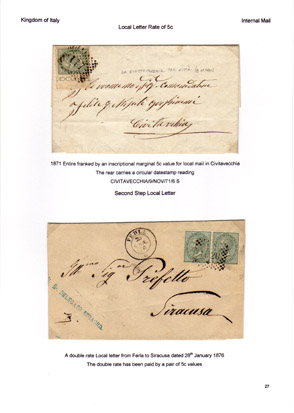 Kingdom of Italy
Internal Mail
Local Letter Rate of 5c
Civitavecchia
1871 Entire franked by an inscriptional marginal 5c value for local mail in Civitavecchia
The rear carries a circular datestamp reading
CIVITAVECCHIA/9/NOV/71/6 S
Second Step Local Letter
FERLA
Prefetto
Siracusa
A double rate Local letter from Ferla to Siracusa dated 28th January 1876
The double rate has been paid by a pair of 5c values
27